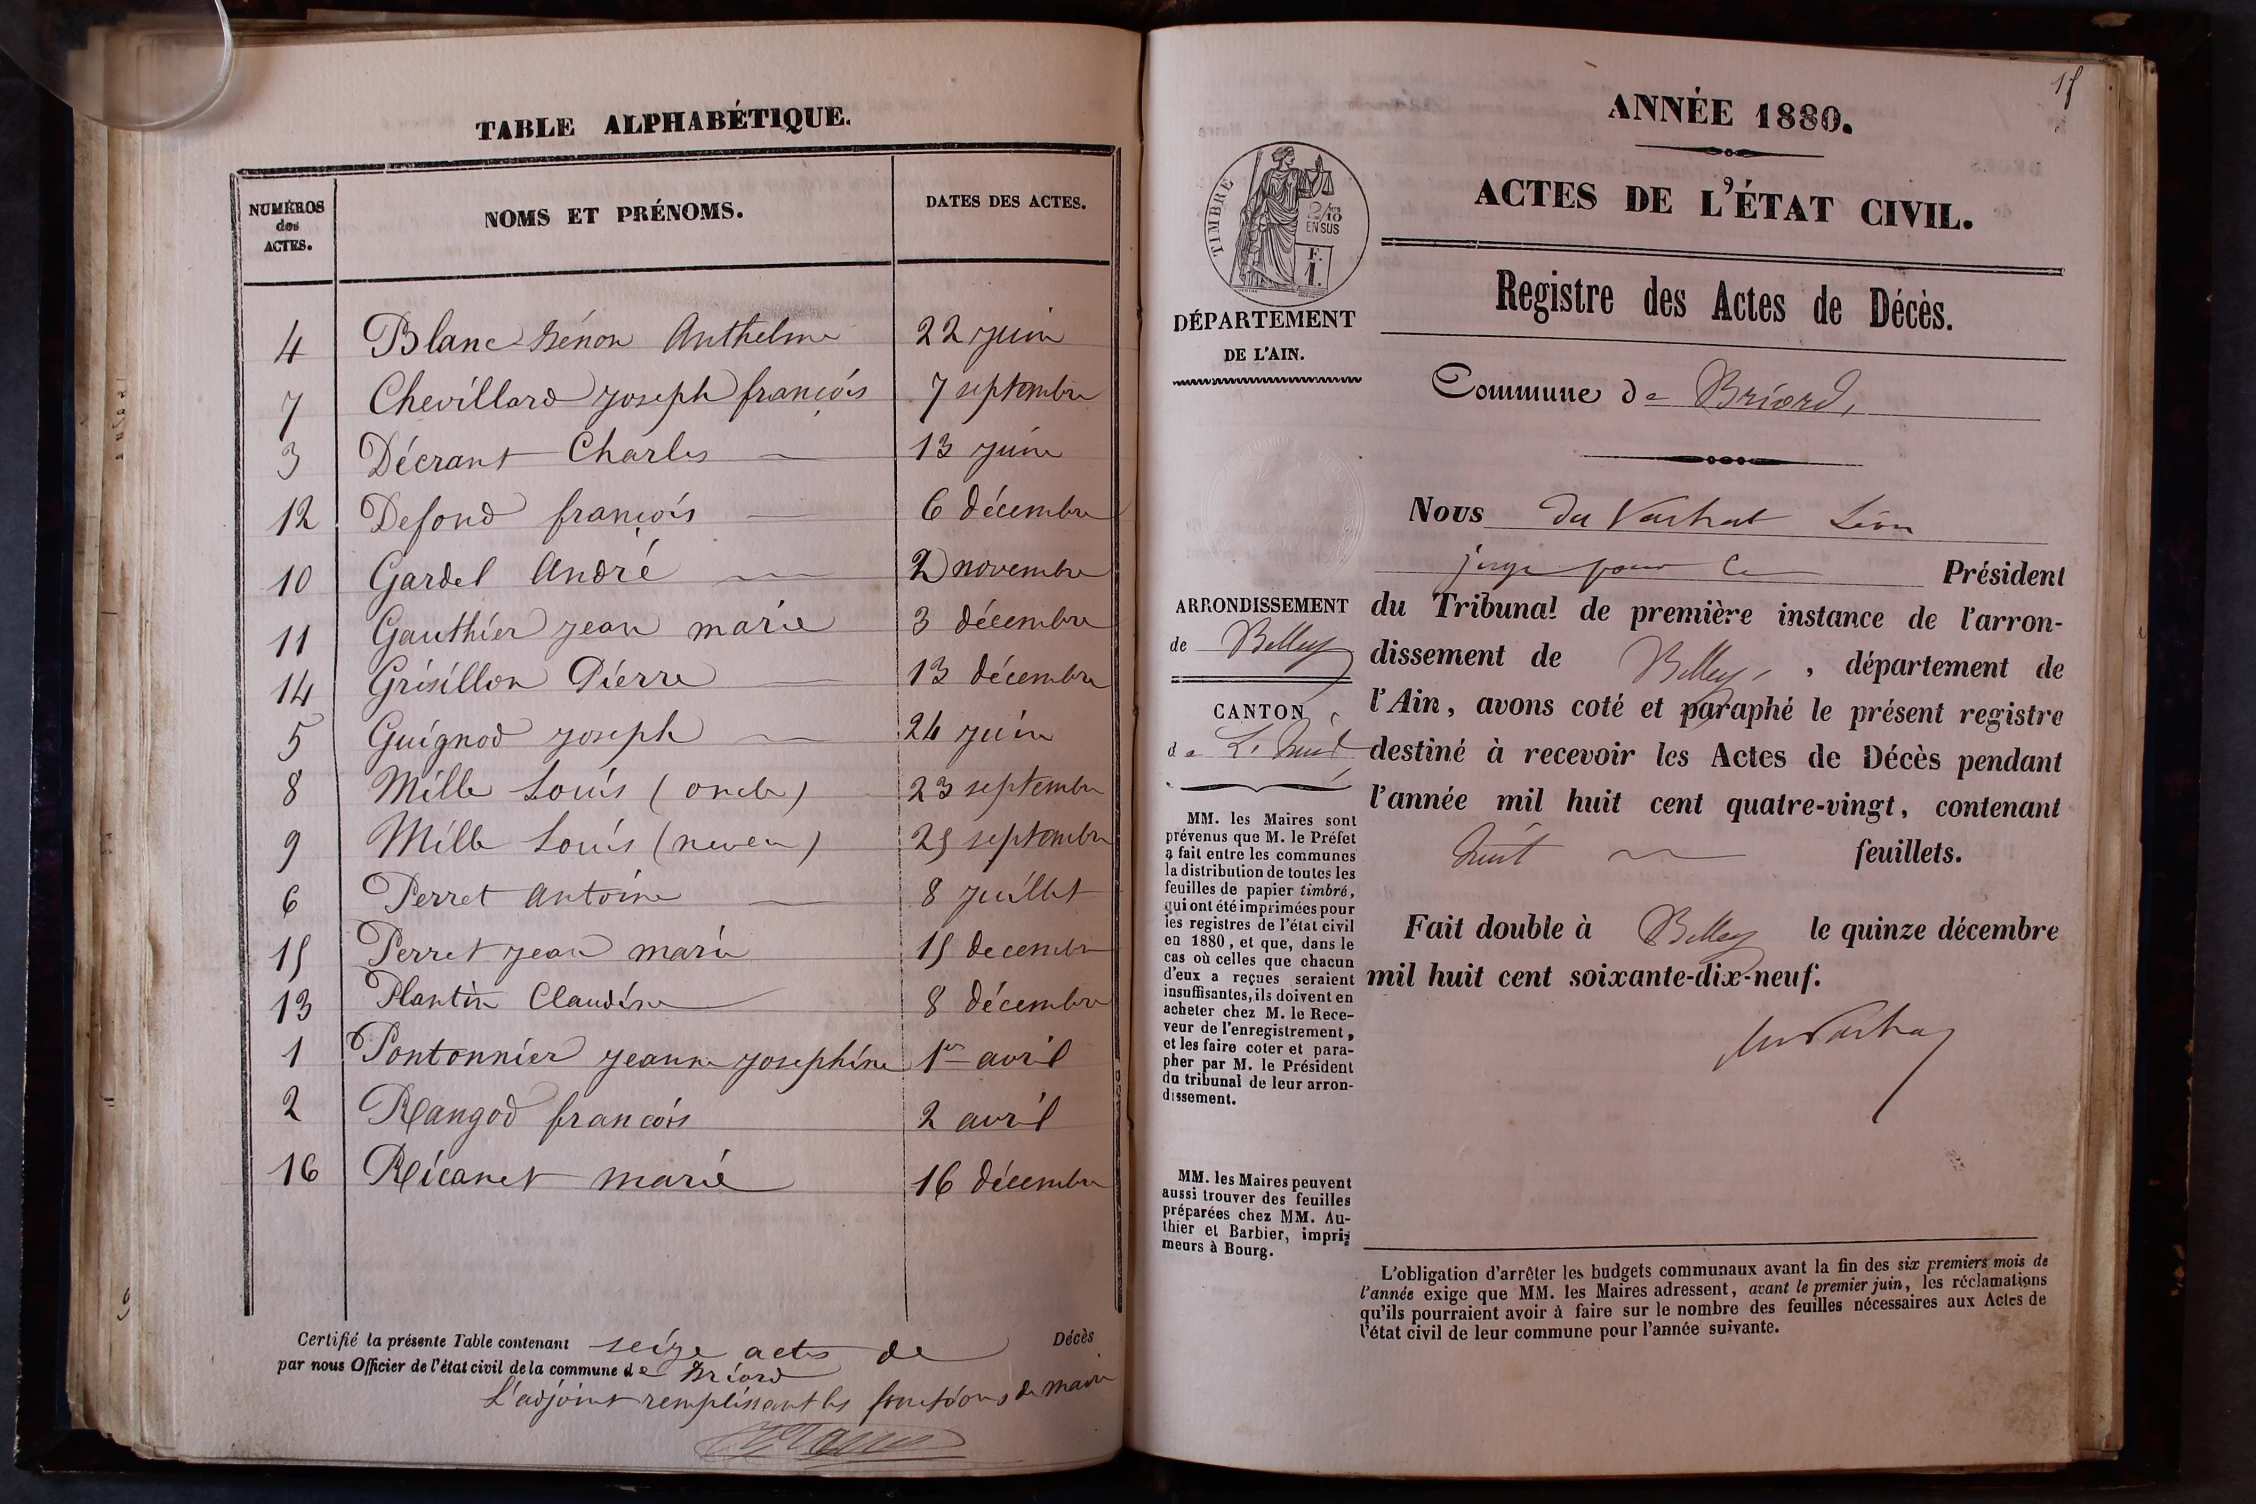 TABLE ALPHABÉTIQUE.
NUMÉROS des ACTES. NOMS ET PRÉNOMS. DATES DES ACTES.
4 Blanc Zénon Anthelme 22 juin
7 Chevillard joseph françois 7 septembre
3 Décrant Charles 13 juin
12 Defond françois 6 décembre
10 Gardel André 2 novembre
11 Gauthier jean marie 3 décembre
14 Grisillon Pierre 13 décembre
5 Guignod joseph 24 juin
8 Mille Louis (oncle) 23 septembre
9 Mille Louis (neveu) 25 septembre
6 Perret antoine 8 juillet
15 Perret jean marie 15 decembre
13 Plantin Claudine 8 décembre
1 Pontonnier jeanne josephine 1er avril
2 Rangod francois 2 avril
16 Ricanet marie 16 décembre
Certifié la présente Table contenant seize actes de Décès
par nous Officier de l'état civil de la commune de Briord
L'adjoint remplissant les fonctions de maire
15
ANNÉE 1880.
ACTES DE L'ÉTAT CIVIL.
Registre des Actes de Décès.
TIMBRE
2/10 EN SUS
F. 1.
DÉPARTEMENT
DE L'AIN.
Commune de Briord,
Nous du Vachat Léon
juge pour le Président
du Tribunal de première instance de l'arron-
dissement de Belley, département de
l'Ain, avons coté et paraphé le présent registre
destiné à recevoir les Actes de Décès pendant
l'année mil huit cent quatre-vingt, contenant
huit feuillets.
Fait double à Belley le quinze décembre
mil huit cent soixante-dix-neuf.
ARRONDISSEMENT
de Belley
CANTON
de
MM. les Maires sont
prévenus que M. le Préfet
a fait entre les communes
la distribution de toutes les
feuilles de papier timbré,
qui ont été imprimées pour
les registres de l'état civil
en 1880, et que, dans le
cas où celles que chacun
d'eux a reçues seraient
insuffisantes, ils doivent en
acheter chez M. le Rece-
veur de l'enregistrement,
et les faire coter et para-
pher par M. le Président
du tribunal de leur arron-
dissement.
MM. les Maires peuvent
aussi trouver des feuilles
préparées chez MM. Au-
thier et Barbier, impri-
meurs à Bourg.
L'obligation d'arrêter les budgets communaux avant la fin des six premiers mois de
l'année exige que MM. les Maires adressent, avant le premier juin, les réclamations
qu'ils pourraient avoir à faire sur le nombre des feuilles nécessaires aux Actes de
l'état civil de leur commune pour l'année suivante.